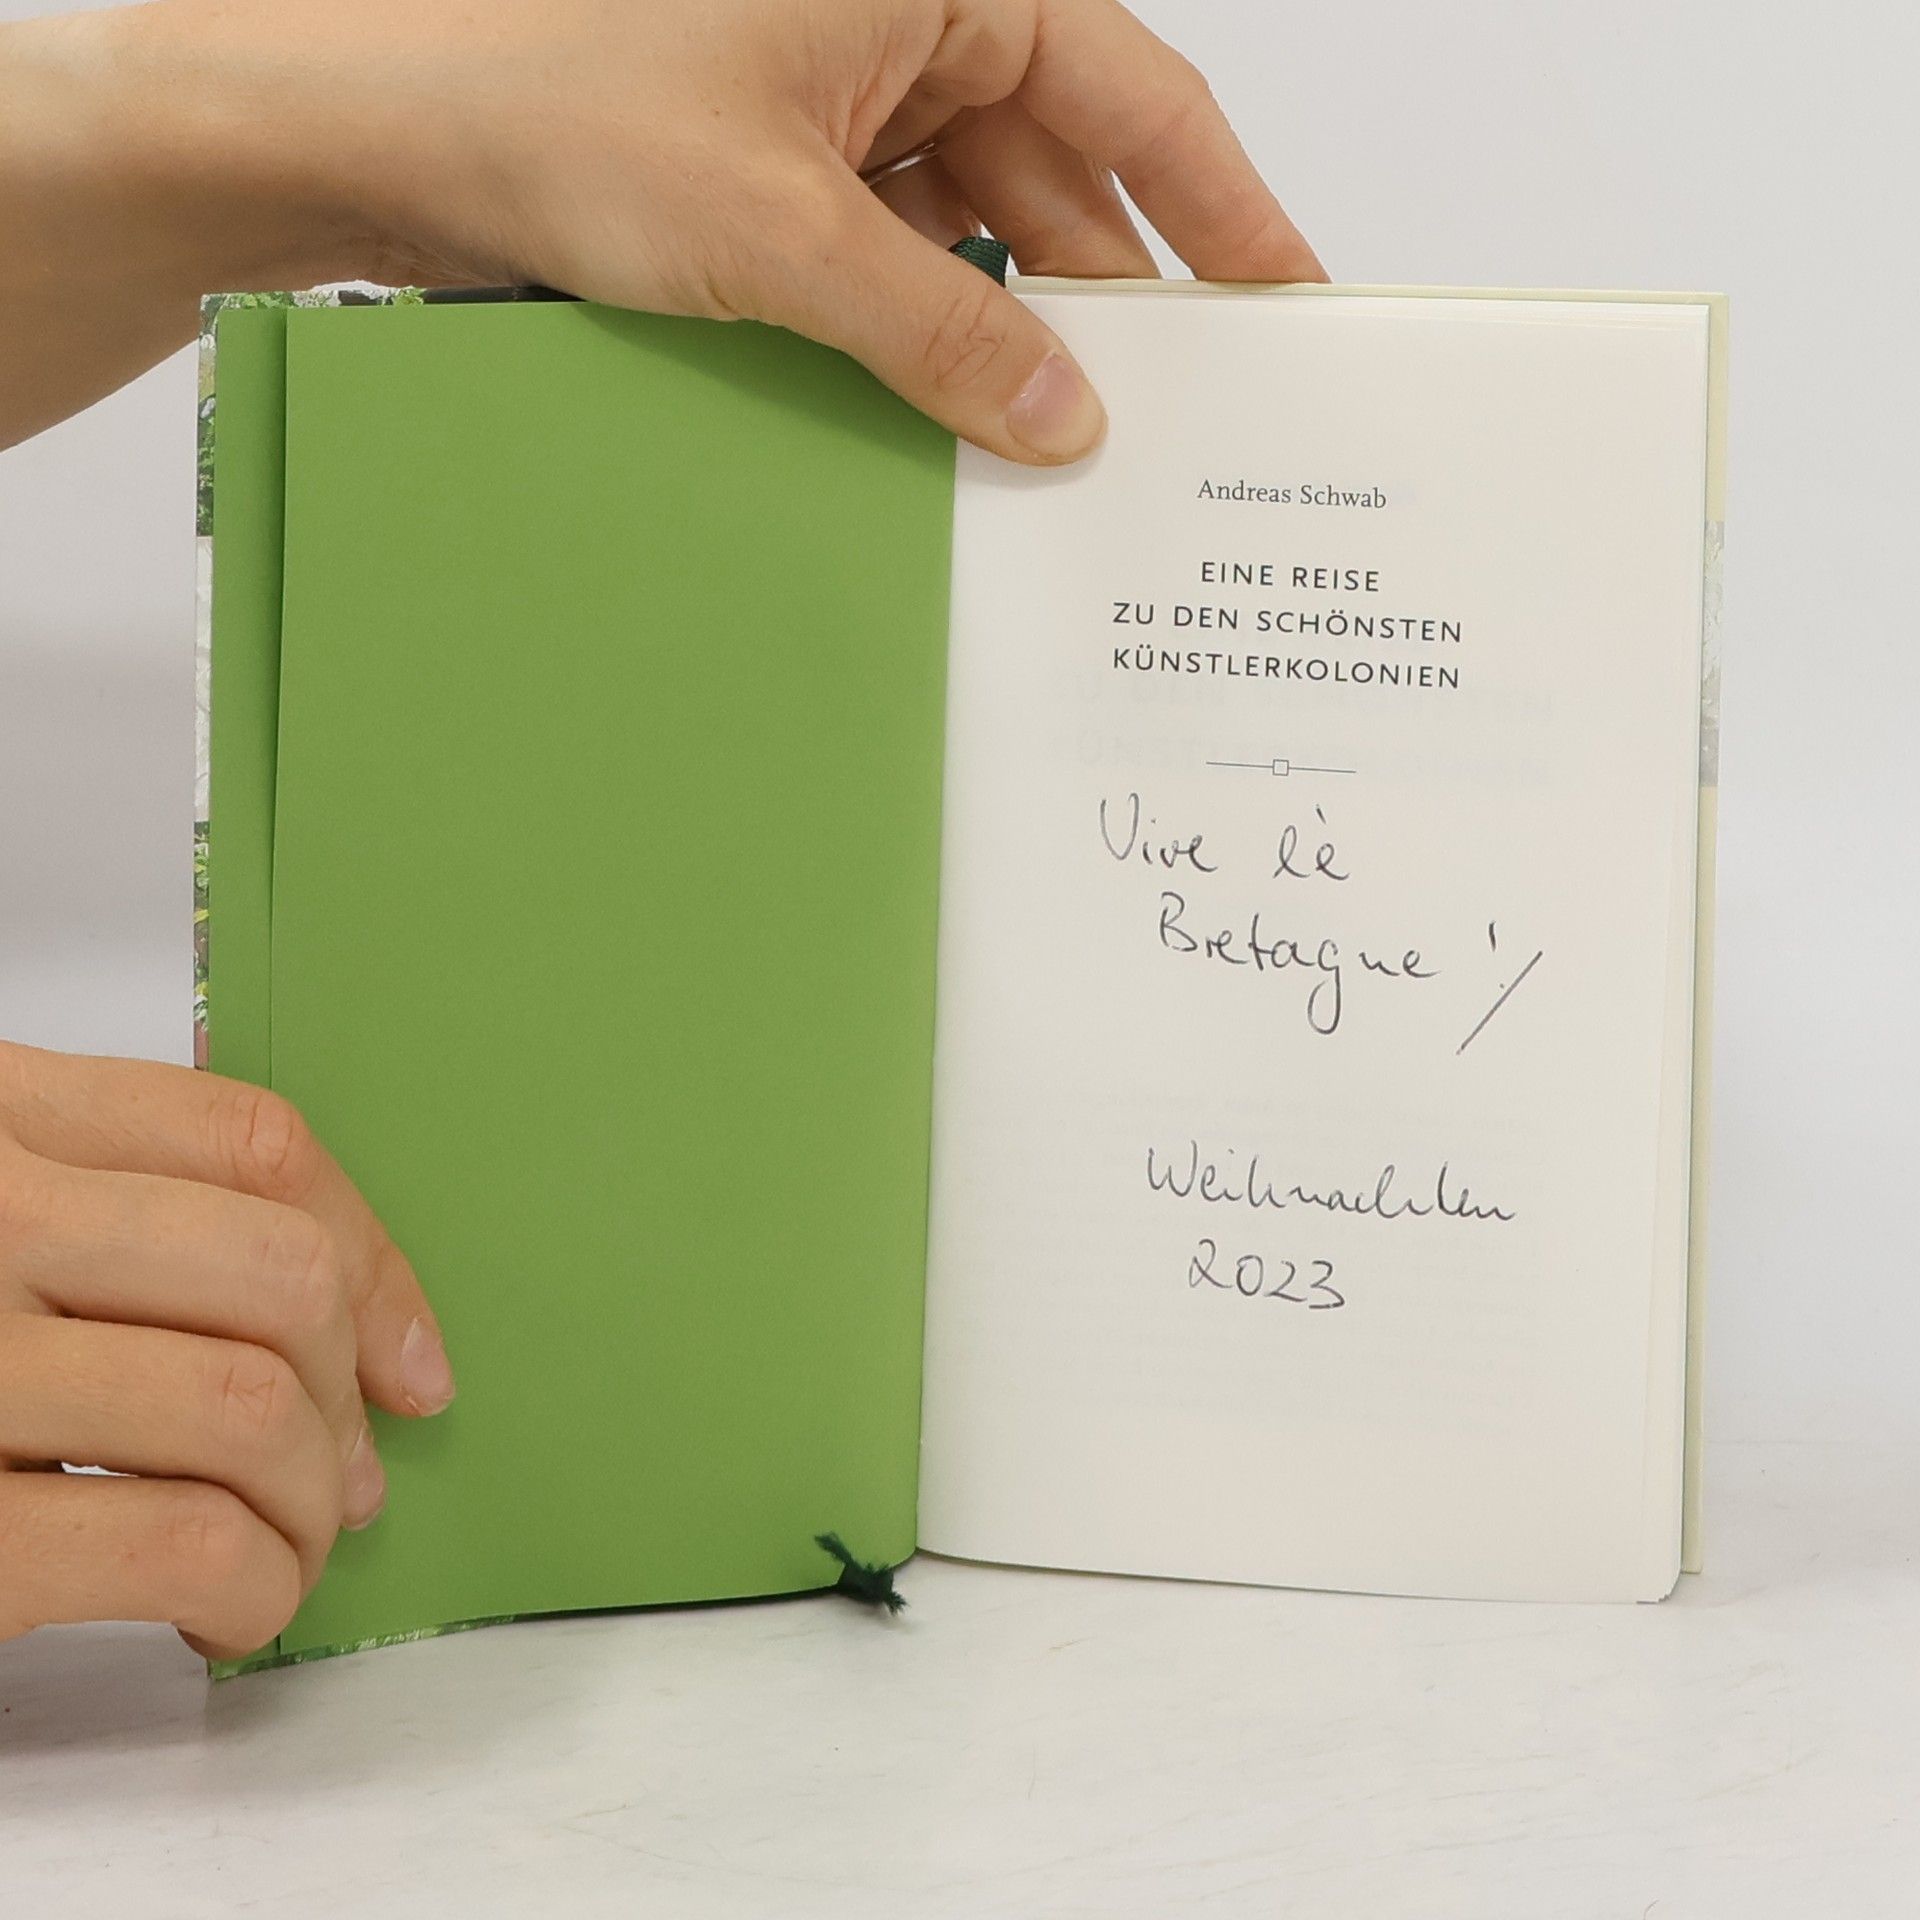 Andreas Schwab
EINE REISE
ZU DEN SCHÖNSTEN
KÜNSTLERKOLONIEN
Vive lè
Bretagne !
Weihnachten
2023